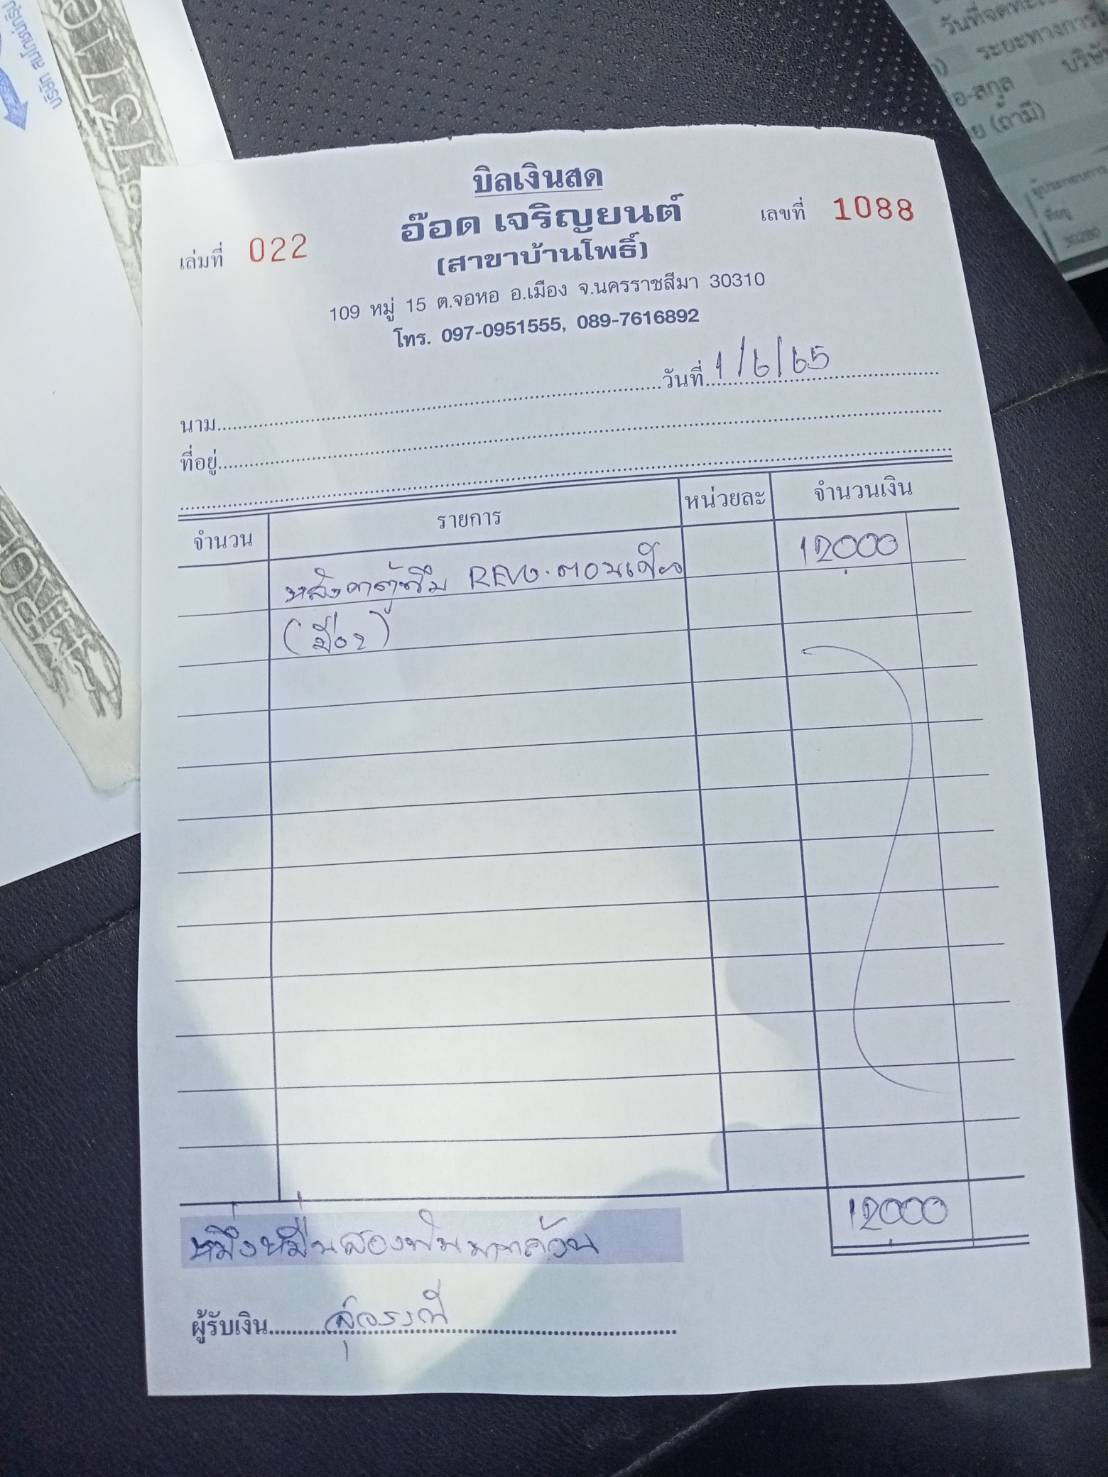 บิลเงินสด
เล่มที่ 022
อ๊อด เจริญยนต์
เลขที่ 1088
(สาขาบ้านโพธิ์)
109 หมู่ 15 ต.จอหอ อ.เมือง จ.นครราชสีมา 30310
โทร. 097-0951555, 089-7616892
วันที่ 1/6/65
นาม
ที่อยู่
จำนวน รายการ หน่วยละ จำนวนเงิน
หลังคาดำซึม REVO. ตอนเดียว 12,000
(มือ2)
12,000
หนึ่งหมื่นสองพันบาทถ้วน
ผู้รับเงิน
บริษัท
วันที่จดทะเบียน
ระยะทางการ
บริษัท
อ-สกุล
ย (ถ้ามี)
ผู้ประกอบการ
ที่อยู่
30280